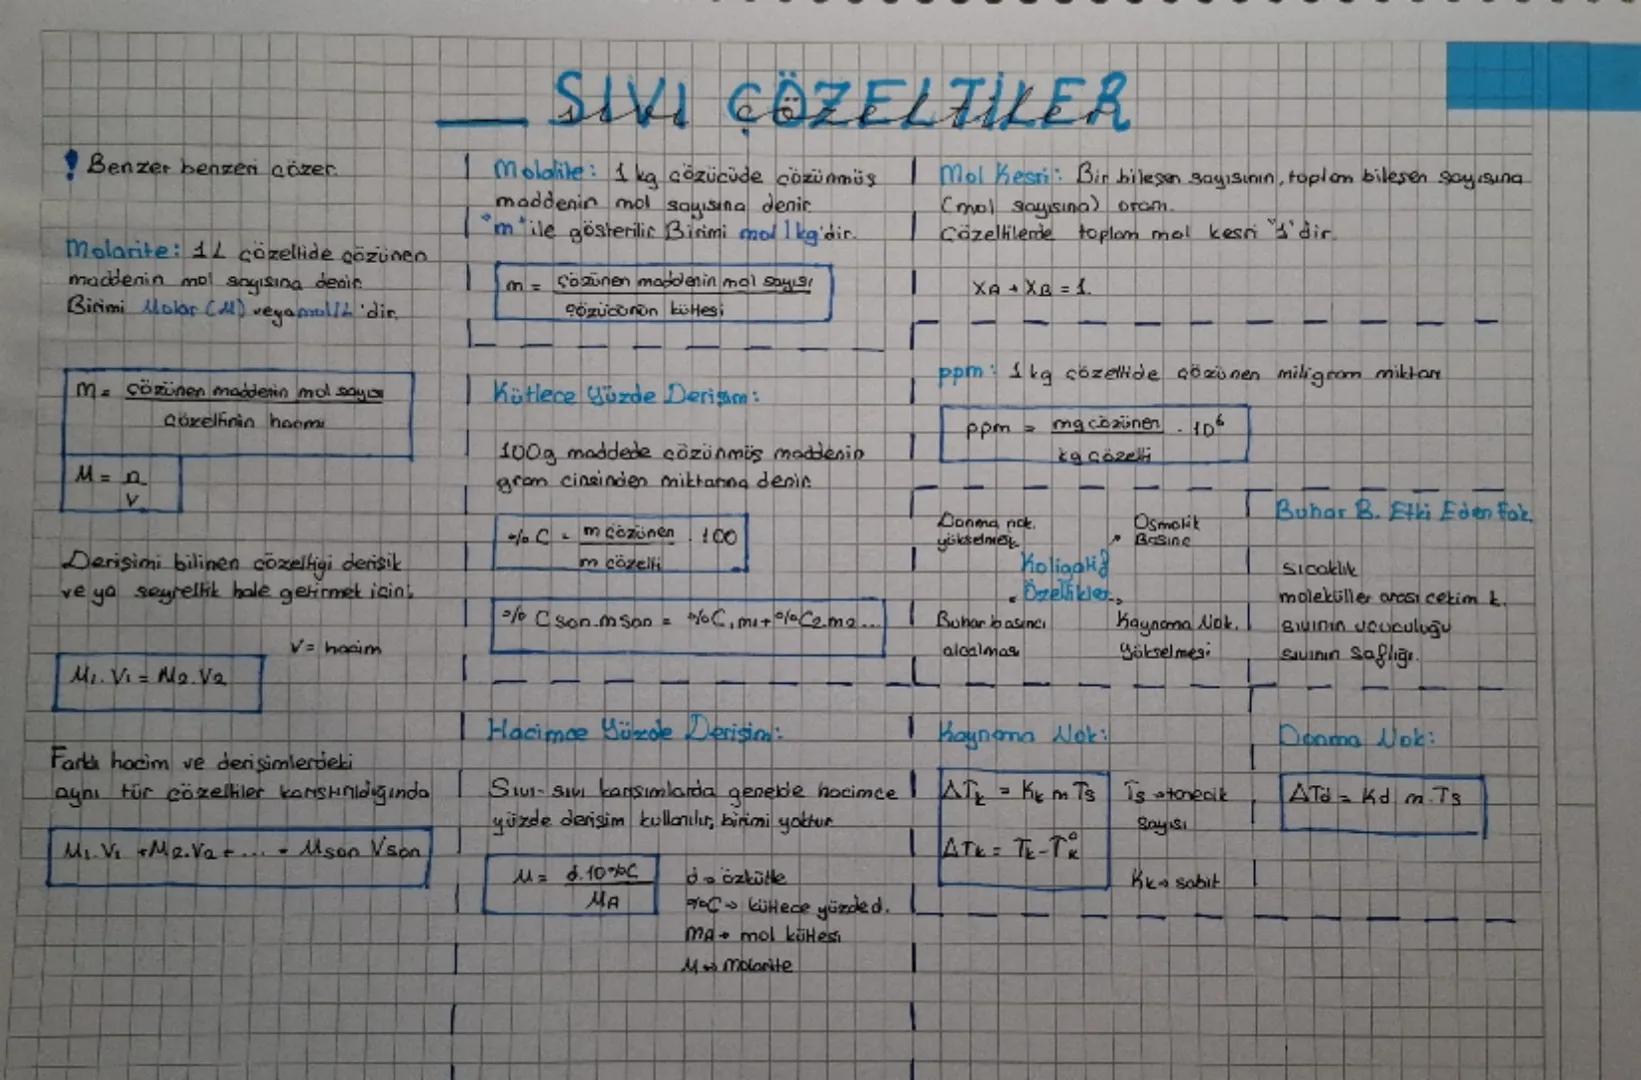 SIVI ÇÖZELTİLER
! Benzer benzeri çözer.
Molarite: 1L çözeltide çözünen
maddenin mol sayısına denir.
Birimi Molar (M) veya mol/L 'dir.
m = çözünen maddenin mol sayısı
çözeltinin hacmi
M = n
V
Derişimi bilinen çözeltiyi derişik
ve ya seyreltik hale getirmek için;
V = hacim
M₁.V₁ = M₂.V₂
Farklı hacim ve derişimlerdeki
aynı tür çözeltiler karıştırıldığında
M₁.V₁ + M₂.V₂ + .... = Mson Vson
Molalite: 1 kg çözücüde çözünmüş
maddenin mol sayısına denir.
"m" ile gösterilir. Birimi mol/kg'dir.
m = çözünen maddenin mol sayısı
çözücünün kütlesi
Kütlece Yüzde Derişim:
100g maddede çözünmüş maddenin
gram cinsinden miktarına denir.
%C = m çözünen . 100
m çözelti
% Cson.mson = %C₁m₁+%C₂m₂...
Hacimce Yüzde Derişim:
Sıvı-sıvı karışımlarda genelde hacimce
yüzde derişim kullanılır, birimi yoktur.
M = d.10%C
MA
d → özkütle
%C → kütlece yüzde d.
mA → mol kütlesi
M → molarite
Mol Kesri: Bir bileşen sayısının, toplam bileşen sayısına
(mol sayısına) oranı.
Çözeltilerde toplam mol kesri "1" dir.
XA + XB = 1.
ppm: 1kg çözeltide çözünen miligram miktarı
ppm = mg çözünen . 10⁶
kg çözelti
Donma nok.
yükselmesi
Osmotik
Basınç
Koligatif
Özellikler
Buhar basıncı
alçalması
Kaynama Nok.
Yükselmesi
Buhar B. Etki Eden Fak.
sıcaklık
moleküller arası çekim k.
sıvının uçuculuğu
sıvının saflığı.
Kaynama Nok:
ΔTk = Kk m Ts
ΔTk = Tk-T°k
Ts → tanecik
sayısı
Kk → sabit
Donma Nok:
ΔTd = Kd m.Ts